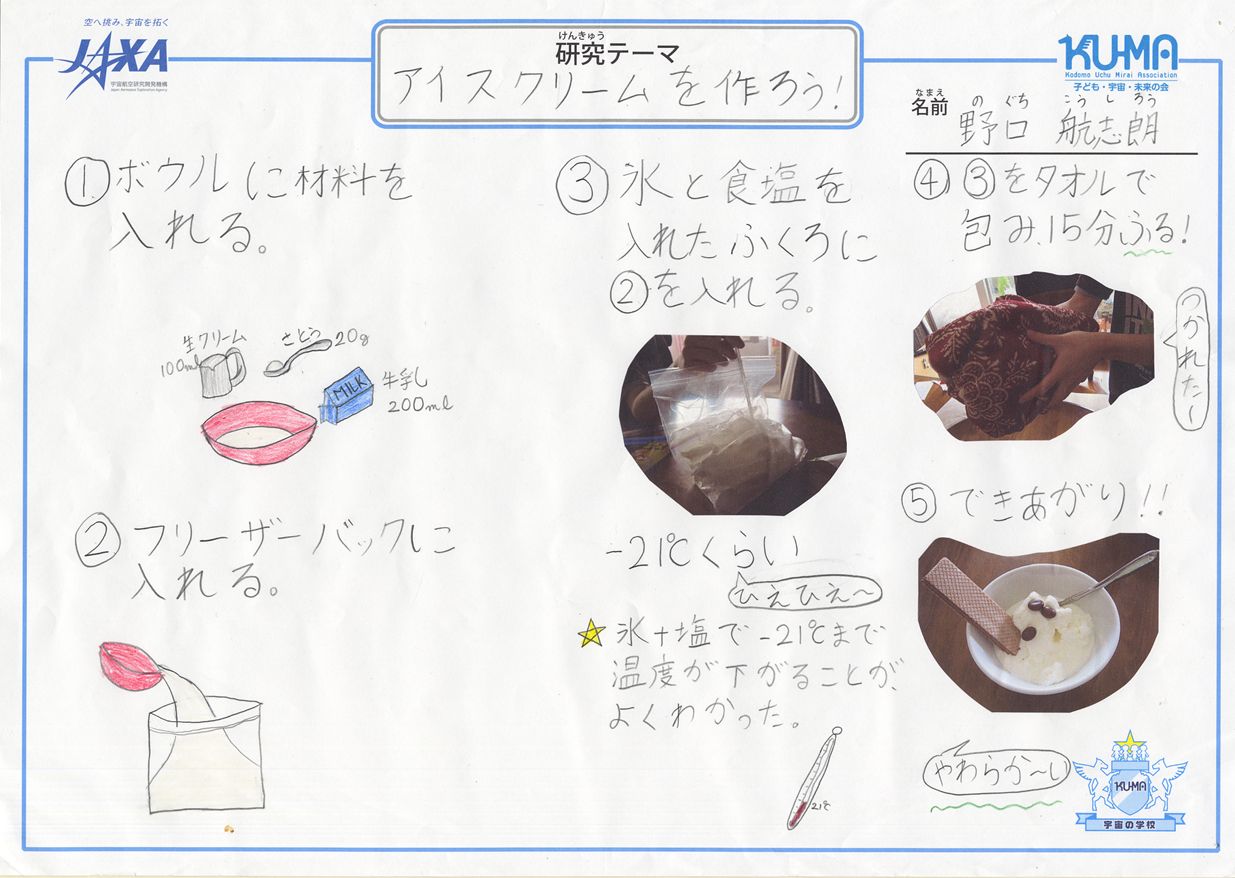 空へ挑み、宇宙を拓く
JAXA
宇宙航空研究開発機構
Japan Aerospace Exploration Agency
けんきゅう
研究テーマ
アイスクリームを作ろう!
KU-MA
Kodomo Uchu Mirai Association
子ども・宇宙・未来の会
なまえ
名前
のぐち こうしろう
野口 航志朗
①ボウルに材料を
入れる。
生クリーム
100ml
さとう 20g
MILK
牛乳
200ml
②フリーザーバックに
入れる。
③氷と食塩を
入れたふくろに
②を入れる。
-21℃くらい
ひえひえ〜
☆氷+塩で-21℃まで
温度が下がることが、
よくわかった。
21℃
④③をタオルで
包み、15分ふる!
つかれた〜
⑤できあがり!!
やわらか〜い
KU-MA
宇宙の学校